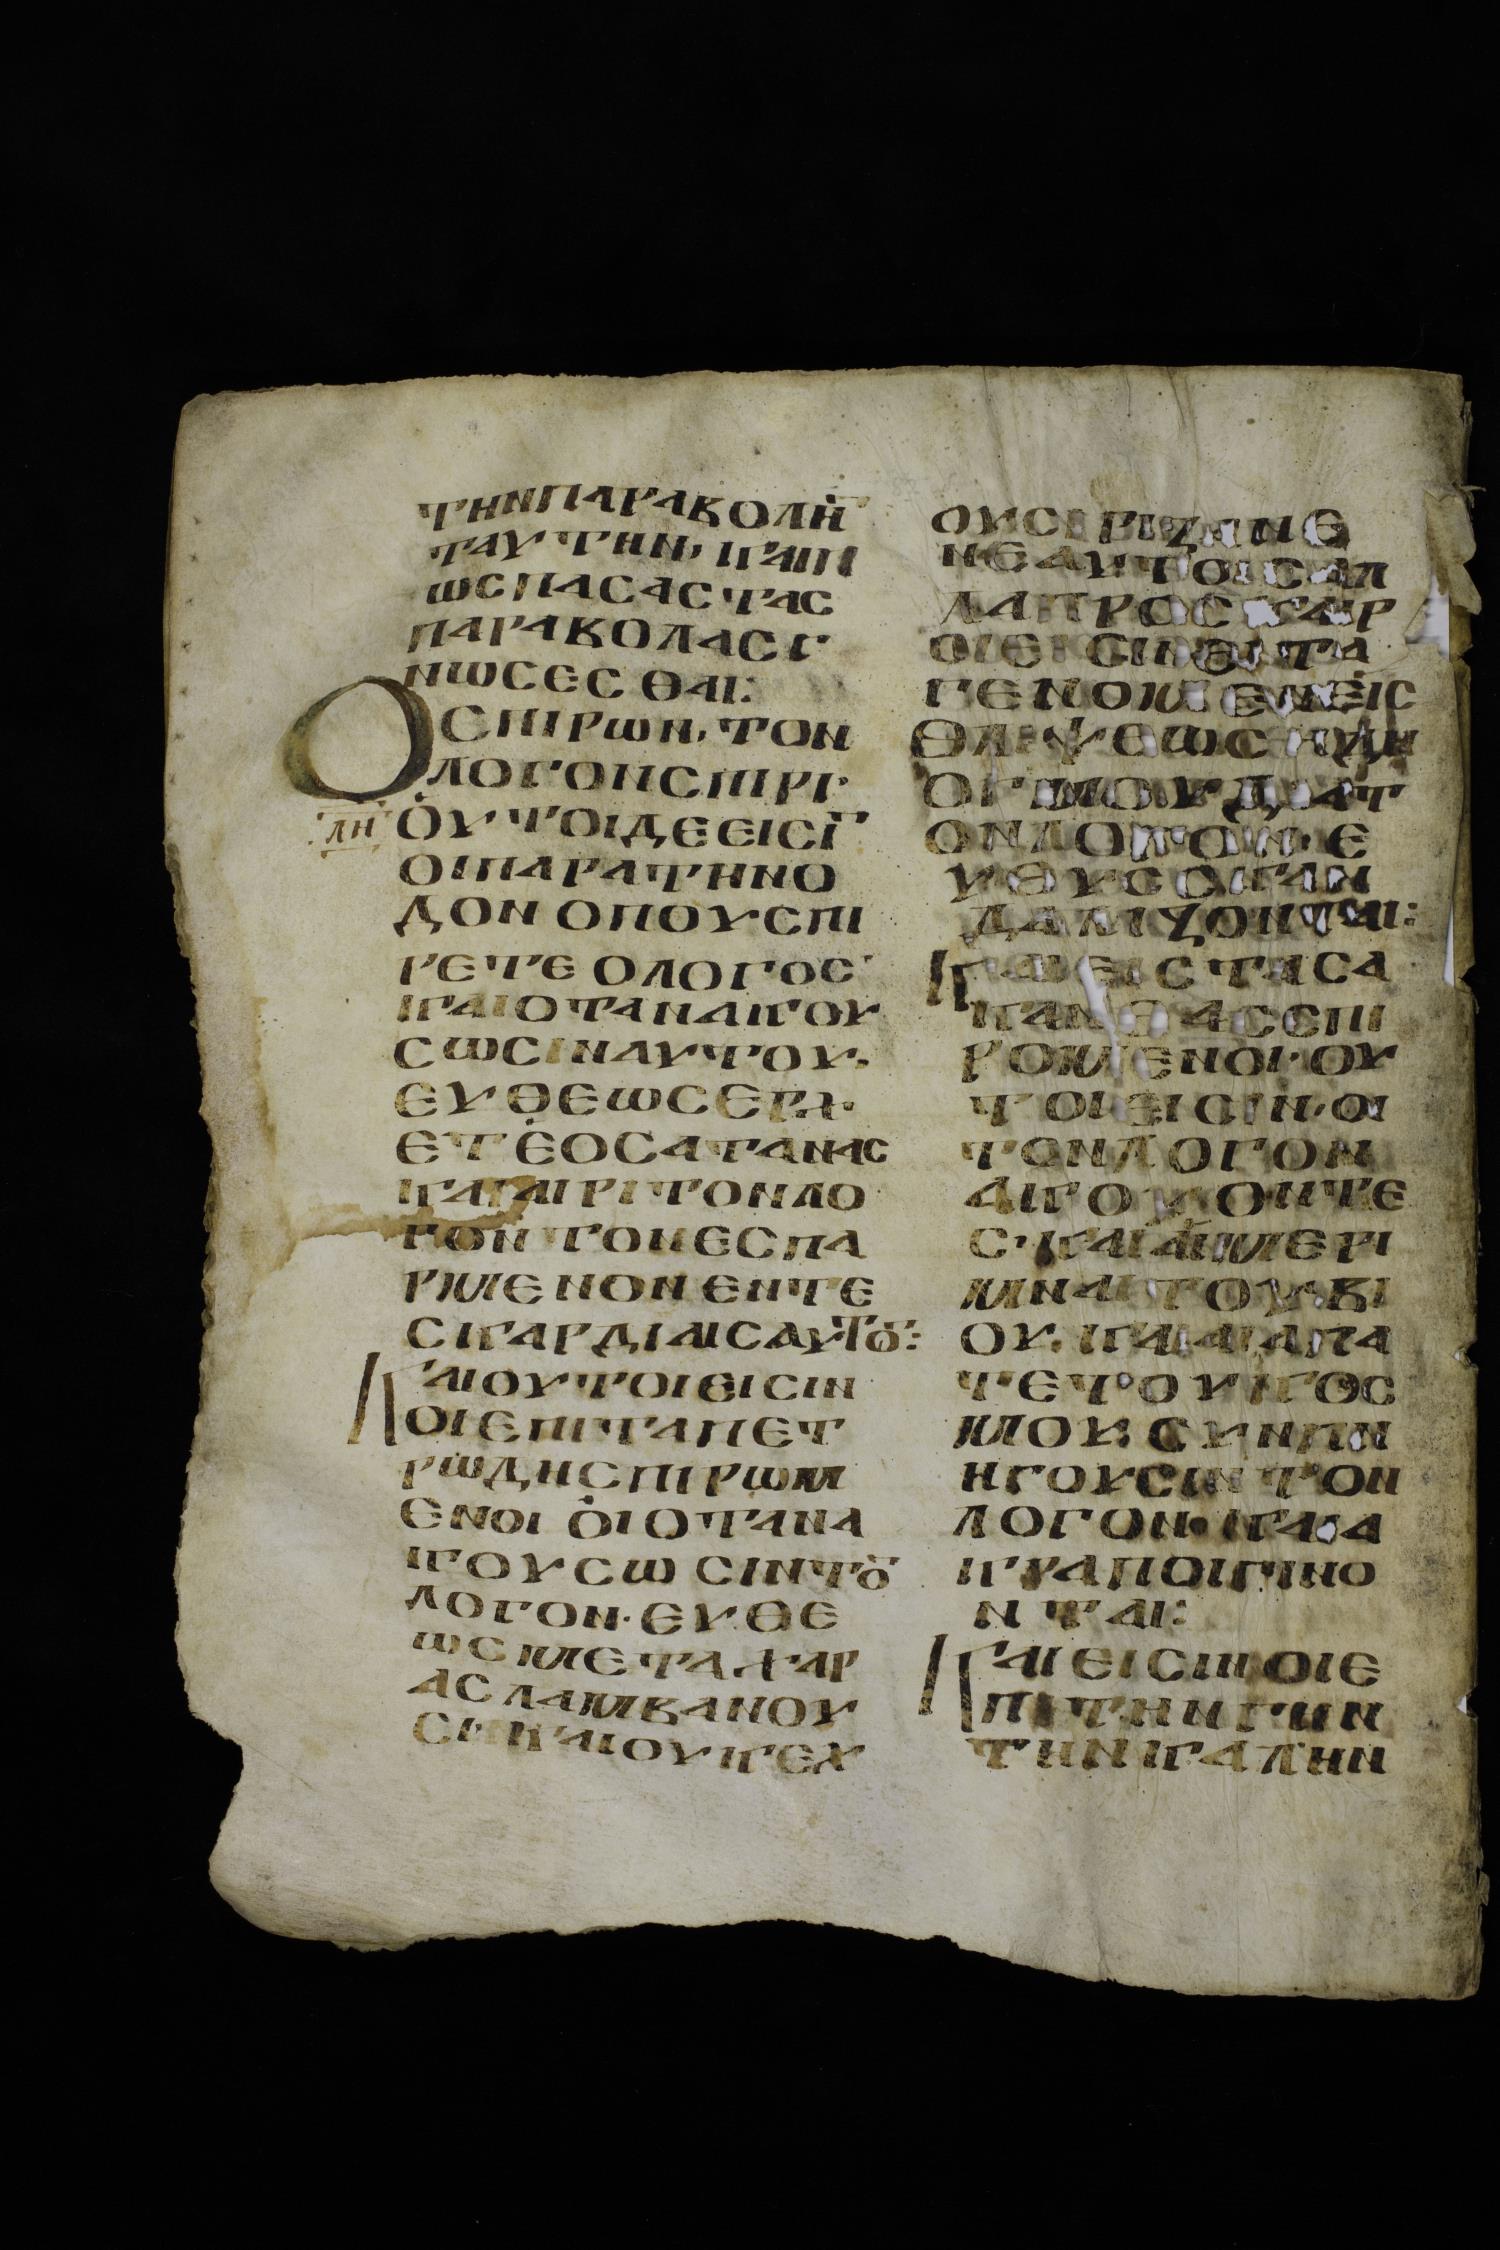 ΤΗΝΠΑΡΑΒΟΛΗ
ΤΑΥΤΗΝ, ΚΑΙΠ
ΩΣΠΑΣΑΣΤΑΣ
ΠΑΡΑΒΟΛΑΣΓ
ΝΩΣΕΣΘΑΙ:
ΟΣΠΙΡΩΝ, ΤΟΝ
ΛΟΓΟΝΣΠΙΡΙ·
ΛΗ
ΟΥΤΟΙΔΕΕΙΣΙ
ΟΙΠΑΡΑΤΗΝΟ
ΔΟΝΟΠΟΥΣΠΙ
ΡΕΤΕΟΛΟΓΟΣ
ΚΑΙΟΤΑΝΑΚΟΥ
ΣΩΣΙΝΑΥΤΟΥ.
ΕΥΘΕΩΣΕΡΧ·
ΕΤΕΟΣΑΤΑΝΑΣ
ΚΑΙΑΙΡΙΤΟΝΛΟ
ΓΟΝΤΟΝΕΣΠΑ
ΡΜΕΝΟΝΕΝΤΕ
ΣΚΑΡΔΙΑΙΣΑΥΤΟ:
ΚΑΙΟΥΤΟΙΕΙΣΙΝ
ΟΙΕΠΙΤΑΠΕΤ
ΡΩΔΗΣΠΙΡΩΜ
ΕΝΟΙΟΙΟΤΑΝΑ
ΚΟΥΣΩΣΙΝΤΟ
ΛΟΓΟΝ·ΕΥΘΕ
ΩΣΜΕΤΑΧΑΡ
ΑΣΛΑΜΒΑΝΟΥ
ΣΙΝΚΑΙΟΥΚΕΧ
ΟΥΣΙΡΙΖΑΝΕ
ΝΕΑΥΤΟΙΣΑΛ
ΛΑΠΡΟΣΚΑΙΡ
ΟΙΕΙΣΙΝΕΙΤΑ
ΓΕΝΟΜΕΝΕΙΣ
ΘΛΙΨΕΩΣ
ΟΓΜΟΥΔΙΑΤ
ΟΝΛΟΓΟΝ·Ε
ΥΘΥΣΣΚΑΝ
ΔΑΛΙΖΟΝΤΑΙ:
ΚΑΙΕΙΣΤΑΣΑ
ΚΑΝΘΑΣΣΠΙ
ΡΟΜΕΝΟΙ·ΟΥ
ΤΟΙΕΙΣΙΝ·ΟΙ
ΤΟΝΛΟΓΟΝ
ΑΚΟΥΟΝΤΕ
Σ·ΚΑΙΑΙΜΕΡΙ
ΜΝΑΙΤΟΥΒΙ
ΟΥ, ΚΑΙΑΙΑΠΑ
ΤΕΤΟΥΚΟΣ
ΜΟΥ, ΣΥΝΠΝ
ΗΓΟΥΣΙΝΤΟΝ
ΛΟΓΟΝ·ΚΑΙΑ
ΚΡΑΠΟΙΓΙΝΟ
ΝΤΑΙ:
ΚΑΙΕΙΣΙΝΟΙΕ
ΠΙΤΗΝΓΗΝ
ΤΗΝΚΑΛΗΝ